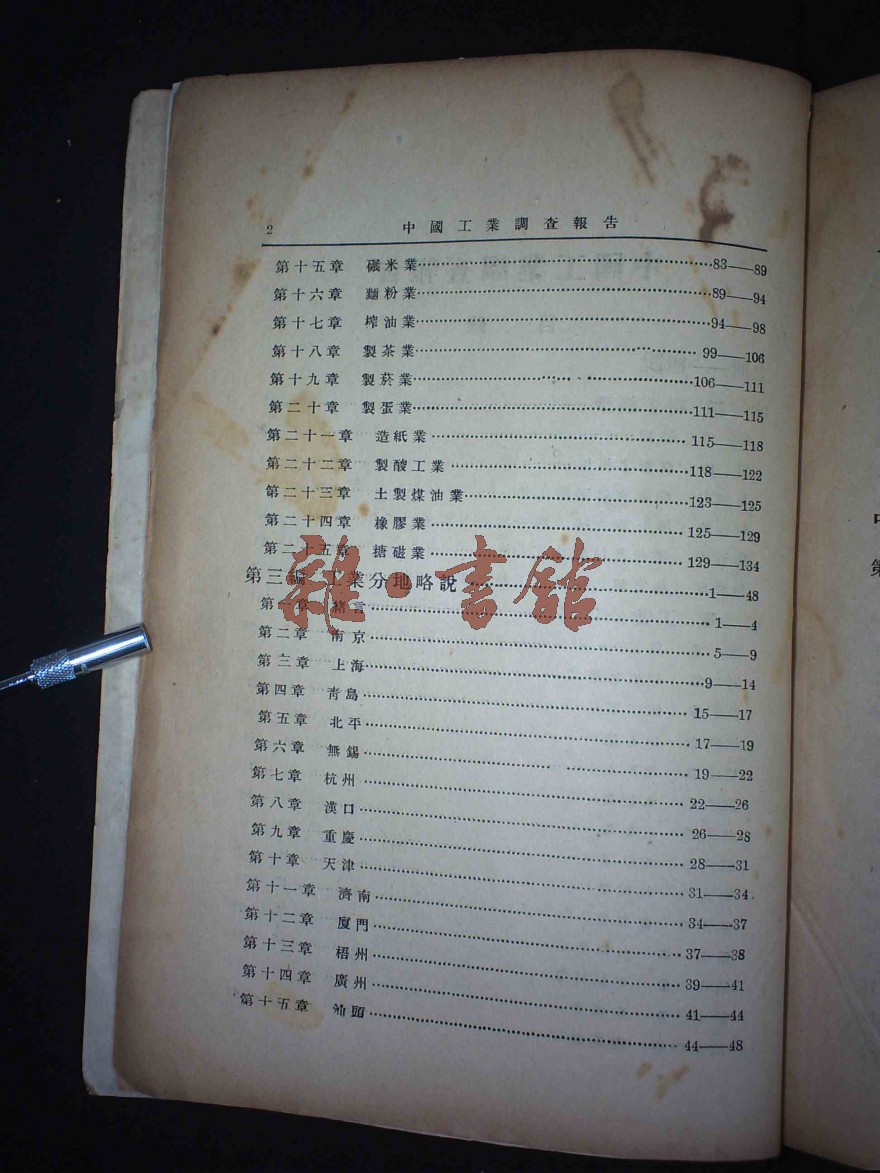 2 中國工業調查報告
第十五章 碾米業……83——89
第十六章 麵粉業……89——94
第十七章 榨油業……94——98
第十八章 製茶業……99——106
第十九章 製菸業……106——111
第二十章 製蛋業……111——115
第二十一章 造紙業……115——118
第二十二章 製酸工業……118——122
第二十三章 土製煤油業……123——125
第二十四章 橡膠業……125——129
第二十五章 搪磁業……129——134
第三編 工業分地略說……1——48
第一章 緒言……1——4
第二章 南京……5——9
第三章 上海……9——14
第四章 青島……15——17
第五章 北平……17——19
第六章 無錫……19——22
第七章 杭州……22——26
第八章 漢口……26——28
第九章 重慶……28——31
第十章 天津……31——34
第十一章 濟南……34——37
第十二章 廈門……37——38
第十三章 梧州……39——41
第十四章 廣州……41——44
第十五章 汕頭……44——48
雜·書館